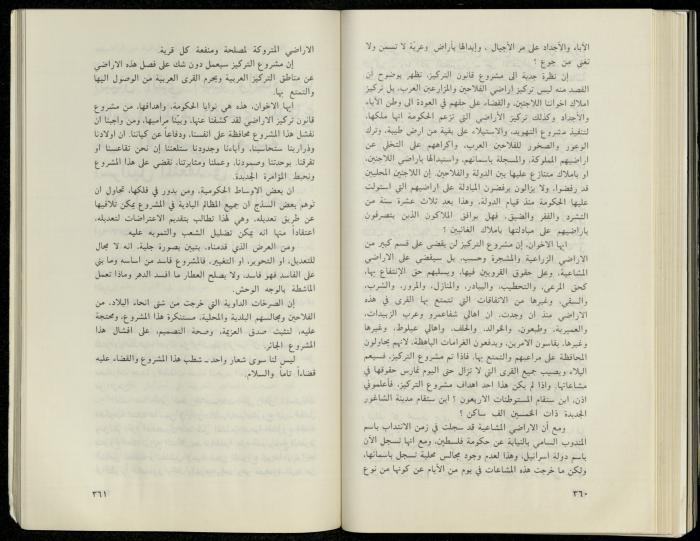 الآباء والأجداد على مر الأجيال ، وابدالها بأراض وعريّة لا تسمن ولا
تغني من جوع ؟
إن نظرة جدية الى مشروع قانون التركيز، تظهر بوضوح أن
القصد منه ليس تركيز اراضي الفلاحين والمزارعين العرب، بل تركيز
املاك اخواننا اللاجئين، والقضاء على حقهم في العودة الى وطن الآباء
والأجداد وكذلك تركيز الأراضي التي تزعم الحكومة انها ملكها،
لتنفيذ مشروع التهويد، والاستيلاء على بقية من ارض طيبة، وترك
الوعور والصخور للفلاحين العرب، واكراههم على التخلي عن
اراضيهم المملوكة، والمسجلة باسمائهم، واستبدالها باراضي اللاجئين،
او باملاك متنازع عليها بين الدولة والفلاحين. إن اللاجئين المحليين
قد رفضوا، ولا يزالون يرفضون المبادلة على اراضيهم التي استولت
عليها الحكومة منذ قيام الدولة، وهذا بعد ثلاث عشرة سنة من
التشرد والفقر والضيق. فهل يوافق الملاكون الذين يتصرفون
باراضيهم على مبادلتها باملاك الغائبين ؟
ايها الاخوان، إن مشروع التركيز لن يقضي على قسم كبير من
الاراضي الزراعية والمشجرة وحسب، بل سيقضي على الاراضي
المشاعية، وعلى حقوق القرويين فيها، ويسلبهم حق الإنتفاع بها،
كحق المرعى، والتحطيب، والبيادر، والمنازل، والمرور، والشرب،
والسقي، وغيرها من الاتفاقات التي تتمتع بها القرى في هذه
الاراضي منذ ان وجدت. ان اهالي شفاعمرو وعرب الزبيدات،
والعميرية، وطبعون، والخوالد، والخلف، واهالي عيلوط، وغيرها
وغيرها، يقاسون الامرين، ويدفعون الغرامات الباهظة، لانهم يحاولون
المحافظة على مراعيهم والتمتع بها. فاذا تم مشروع التركيز، فسيعم
البلاء ويصيب جميع القرى التي لا تزال حتى اليوم تمارس حقوقها في
مشاعاتها. واذا لم يكن هذا احد اهداف مشروع التركيز، فأعلموني
اذن، اين ستقام المستوطنات الاربعون ؟ اين ستقام مدينة الشاغور
الجديدة ذات الخمسين الف ساكن ؟
ومع أن الاراضي المشاعية قد سجلت في زمن الانتداب باسم
المندوب السامي بالنيابة عن حكومة فلسطين، ومع انها تسجل الآن
باسم دولة اسرائيل، وهذا لعدم وجود مجالس محلية تسجل باسمائها،
ولكن ما خرجت هذه المشاعات في يوم من الأيام عن كونها من نوع
٣٦٠
الاراضي المتروكة لمصلحة ومنفعة كل قرية.
إن مشروع التركيز سيعمل دون شك على فصل هذه الاراضي
عن مناطق التركيز العربية ويحرم القرى العربية من الوصول اليها
والتمتع بها.
ايها الاخوان، هذه هي نوايا الحكومة، واهدافها، من مشروع
قانون تركيز الاراضي لقد كشفنا عنها، وبيّنا مراميها، ومن واجبنا ان
نفشل هذا المشروع محافظة على انفسنا، ودفاعاً عن كياننا. ان اولادنا
وذرارينا ستحاسبنا، وآباءنا وجدودنا ستلعننا إن نحن تقاعسنا او
تفرقنا. بوحدتنا وصمودنا، وعملنا ومثابرتنا، نقضي على هذا المشروع
ونحبط المؤامرة الجديدة.
ان بعض الاوساط الحكومية، ومن يدور في فلكها، تحاول ان
توهم بعض السذج ان جميع المظالم البادية في المشروع يمكن تلافيها
عن طريق تعديله، وهي لهذا تطالب بتقديم الاعتراضات لتعديله،
اعتقاداً منها انه يمكن تضليل الشعب والتمويه عليه.
ومن العرض الذي قدمناه، يتبين بصورة جلية، انه لا مجال
للتعديل، او التحوير، او التغيير، فالمشروع فاسد من اساسه وما بني
على الفاسد فهو فاسد، ولا يصلح العطار ما افسد الدهر وماذا تعمل
الماشطة بالوجه الوحش.
إن الصرخات الداوية التي خرجت من شتى انحاء البلاد، من
الفلاحين ومجالسهم البلدية والمحلية، مستنكرة هذا المشروع، ومحتجة
عليه، لتثبت صدق العزيمة، وصحة التصميم، على افشال هذا
المشروع الجائر.
ليس لنا سوى شعار واحد ــ شطب هذا المشروع والقضاء عليه
قضاءاً تاماً والسلام.
٣٦١